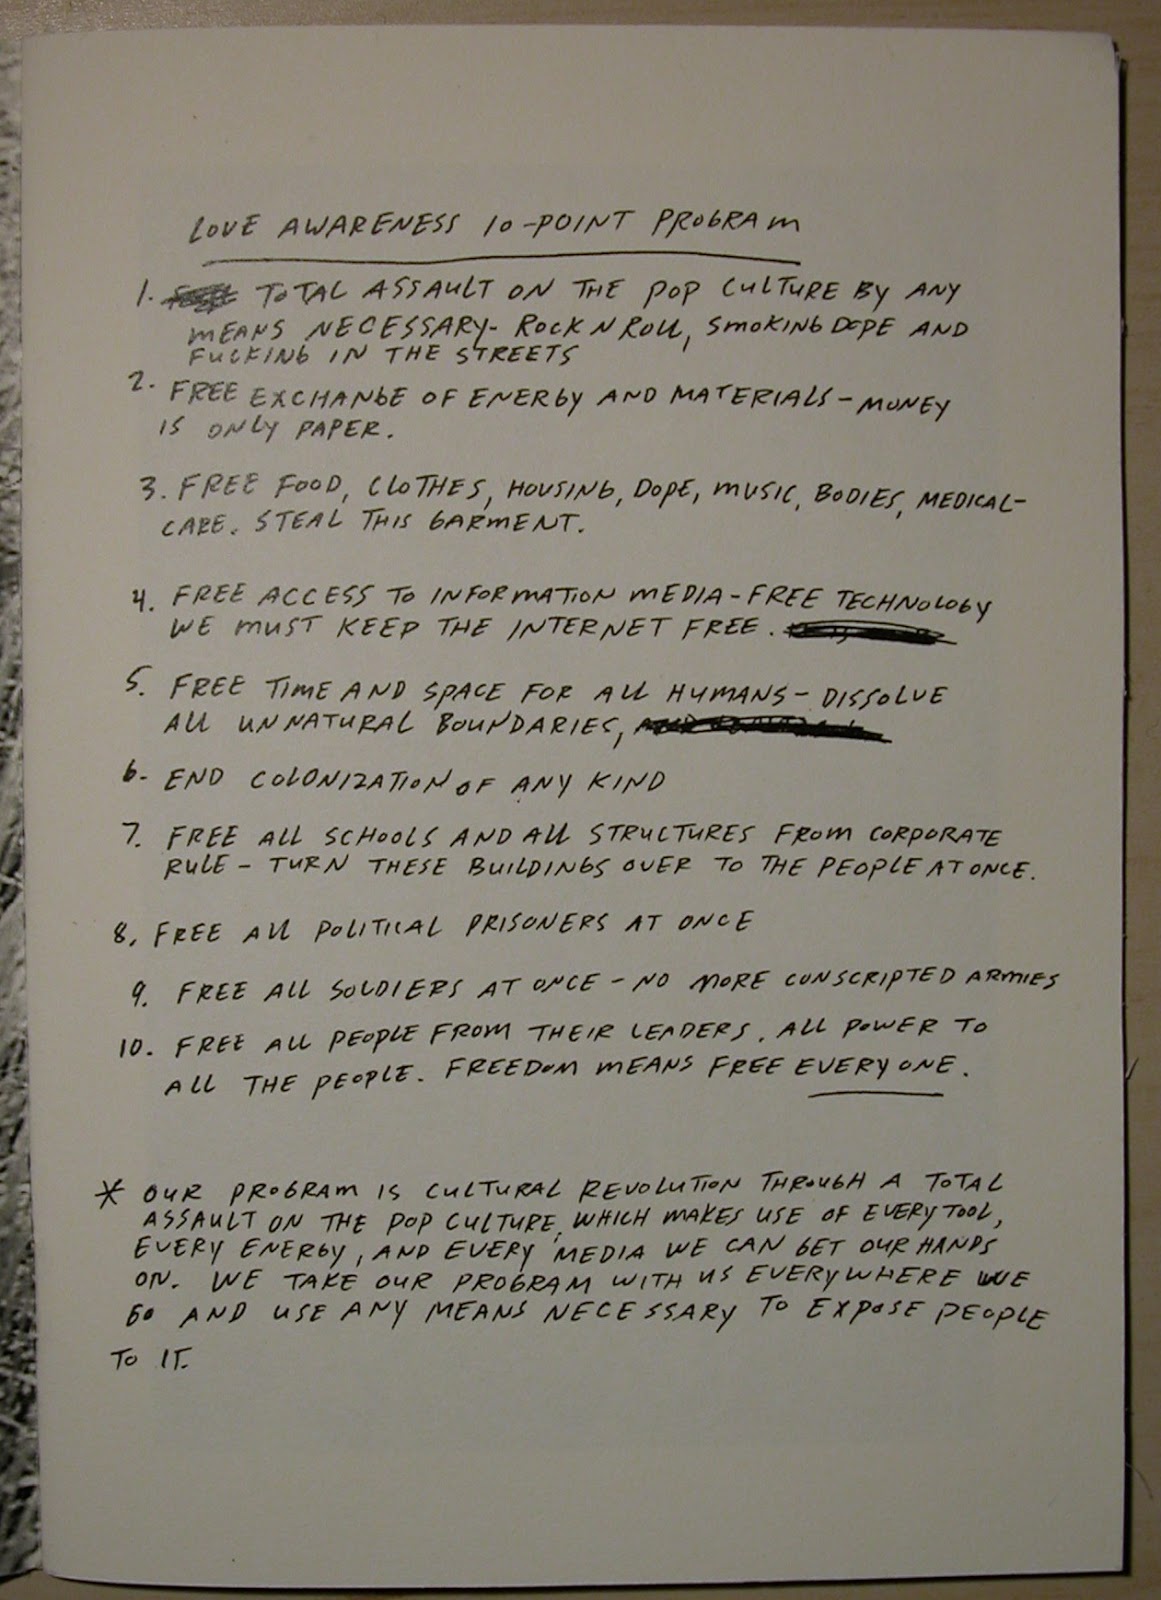 LOVE AWARENESS 10-POINT PROGRAM
1. TOTAL ASSAULT ON THE POP CULTURE BY ANY
MEANS NECESSARY- ROCK N ROLL, SMOKING DOPE AND
FUCKING IN THE STREETS
2. FREE EXCHANGE OF ENERGY AND MATERIALS - MONEY
IS ONLY PAPER.
3. FREE FOOD, CLOTHES, HOUSING, DOPE, MUSIC, BODIES, MEDICAL-
CARE. STEAL THIS GARMENT.
4. FREE ACCESS TO INFORMATION MEDIA - FREE TECHNOLOGY
WE MUST KEEP THE INTERNET FREE.
5. FREE TIME AND SPACE FOR ALL HUMANS - DISSOLVE
ALL UNNATURAL BOUNDARIES,
6- END COLONIZATION OF ANY KIND
7. FREE ALL SCHOOLS AND ALL STRUCTURES FROM CORPORATE
RULE - TURN THESE BUILDINGS OVER TO THE PEOPLE AT ONCE.
8. FREE ALL POLITICAL PRISONERS AT ONCE
9. FREE ALL SOLDIERS AT ONCE - NO MORE CONSCRIPTED ARMIES
10. FREE ALL PEOPLE FROM THEIR LEADERS. ALL POWER TO
ALL THE PEOPLE. FREEDOM MEANS FREE EVERYONE.
* OUR PROGRAM IS CULTURAL REVOLUTION THROUGH A TOTAL
ASSAULT ON THE POP CULTURE, WHICH MAKES USE OF EVERY TOOL,
EVERY ENERGY, AND EVERY MEDIA WE CAN GET OUR HANDS
ON. WE TAKE OUR PROGRAM WITH US EVERYWHERE WE
GO AND USE ANY MEANS NECESSARY TO EXPOSE PEOPLE
TO IT.